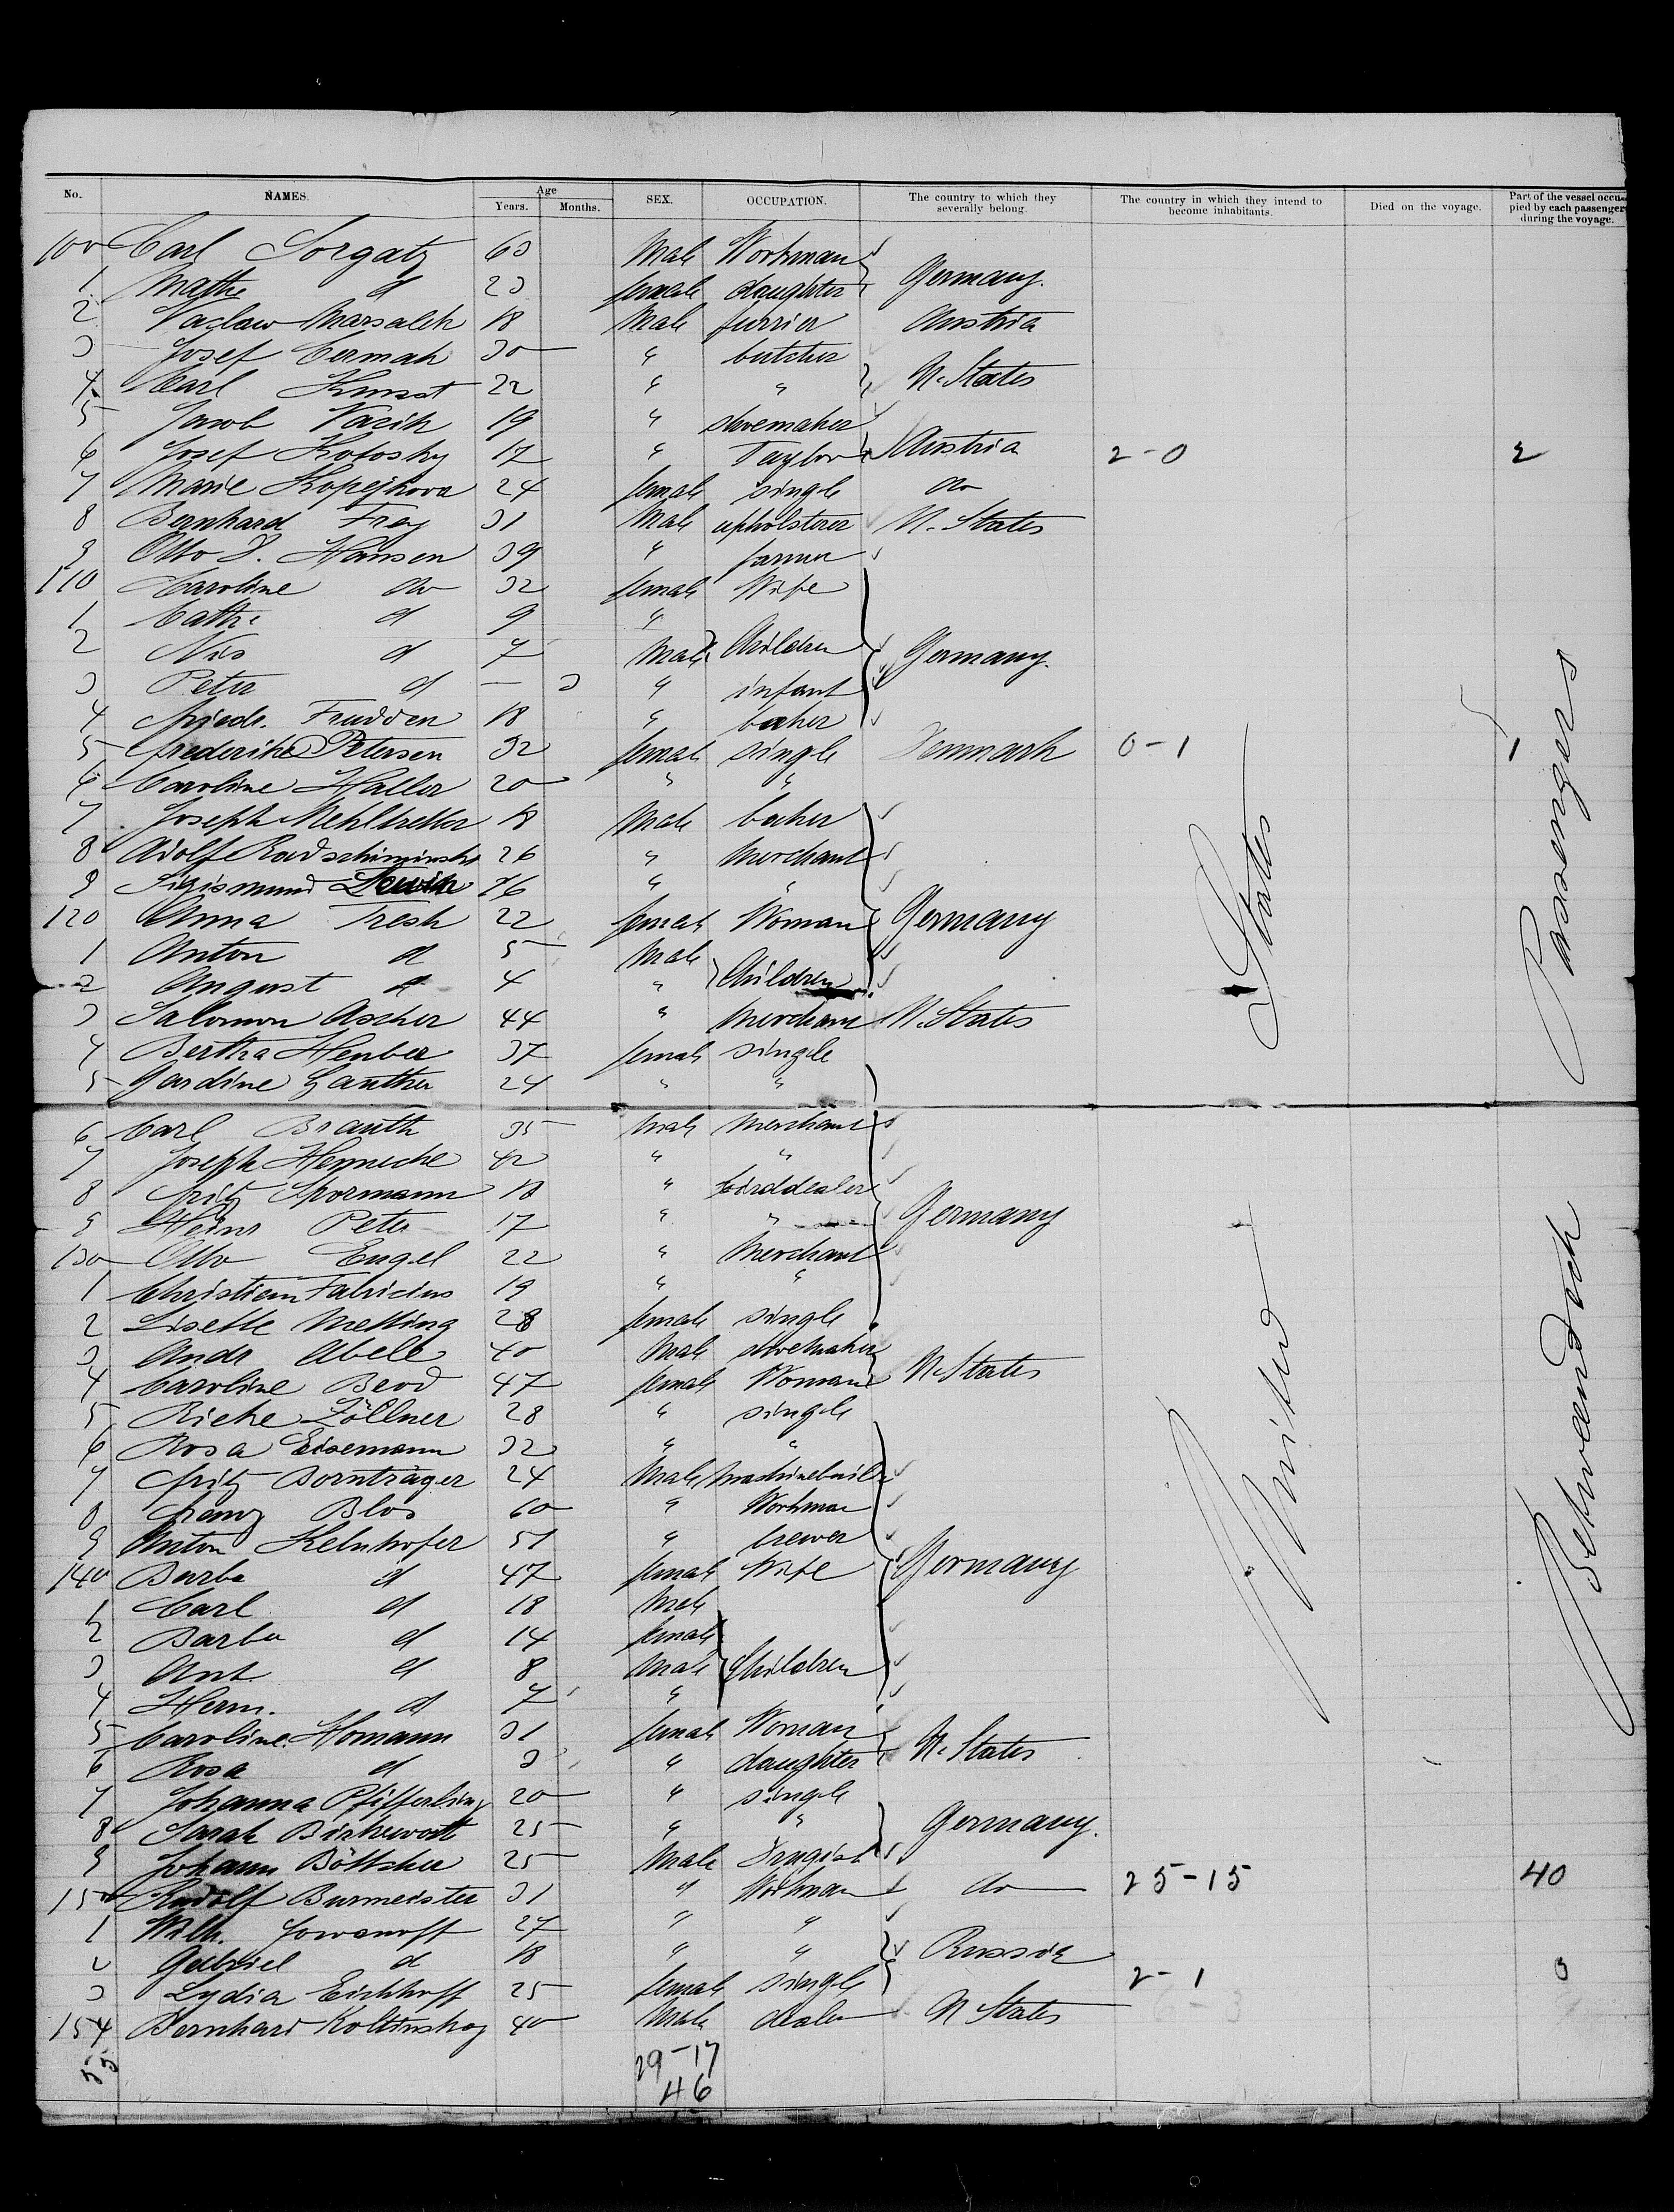 No. NAMES. Age Years. Months. SEX. OCCUPATION. The country to which they severally belong. The country in which they intend to become inhabitants. Died on the voyage. Part of the vessel occupied by each passenger during the voyage.
100 Carl Sorgatz 63 Male Workman
1 Mathe d 23 female daughter Germany.
2 Vaclaw Marsalek 18 Male furrier Austria
3 Josef Cermak 30 " butcher
4 Carl Kunst 22 " " U. States
5 Jacob Vazik 19 " shoemaker
6 Josef Kotosky 17 " Taylor Austria 2-0 2
7 Marie Kopejkova 24 female single do
8 Bernhard Frey 31 Male upholsterer U. States
9 Otto F. Hansen 39 " farmer
110 Caroline do 32 female Wife
1 Cathe d 9 "
2 Nis d 7 Male Children Germany.
3 Peter d — 3 " infant
4 Friedr. Fredden 18 " baker
5 Frederike Petersen 32 female single Denmark 0-1 1
6 Caroline Haller 20 " "
7 Joseph Mehltretter 18 Male baker
8 Adolf Radschiminski 26 " Merchant
9 Sigismund Lewin 26 " "
120 Anna Tresk 22 female Woman Germany
1 Anton d 5 Male
2 August d 4 " Children
3 Salomon Ascher 44 " Merchant U. States
4 Bertha Henber 37 female single
5 Gardine Ganther 24 " "
6 Carl Brauth 35 Male Merchant
7 Joseph Hennecke 42 " "
8 Fritz Spormann 18 " birddealer
9 Heinr Peter 17 " " Germany
130 Otto Engel 22 " Merchant
1 Christian Fabricius 19 " "
2 Lisette Melling 28 female single
3 Andr Abele 40 Male shoemaker
4 Caroline Beod 47 female Woman U. States
5 Rieke Zöllner 28 " single
6 Rosa Eisemann 32 " "
7 Fritz Bornträger 24 Male machinebuild
8 Franz Blos 60 " Workman
9 Anton Kelnhofer 51 " brewer
140 Barba d 47 female Wife Germany
1 Carl d 18 Male
2 Barba d 14 female
3 Ant. d 8 Male Children
4 Herm. d 7 "
5 Caroline Homann 31 female Woman
6 Rosa d 3 " daughter U. States
7 Johanna Pfifferling 20 " single
8 Sarah Birkewost 25 " " Germany.
9 Johann Böttcher 25 Male Drugist
150 Rudolf Burmeister 31 " Workman do 25-15 40
1 Wilh. Jowanoff 27 " "
2 Gabriel d 18 " " Russia
3 Lydia Eichhoff 25 female single 2-1 3
154 Bernhard Koltinskoy 40 Male dealer U States
55
29-17
46
United States
Betweendeck Passengers